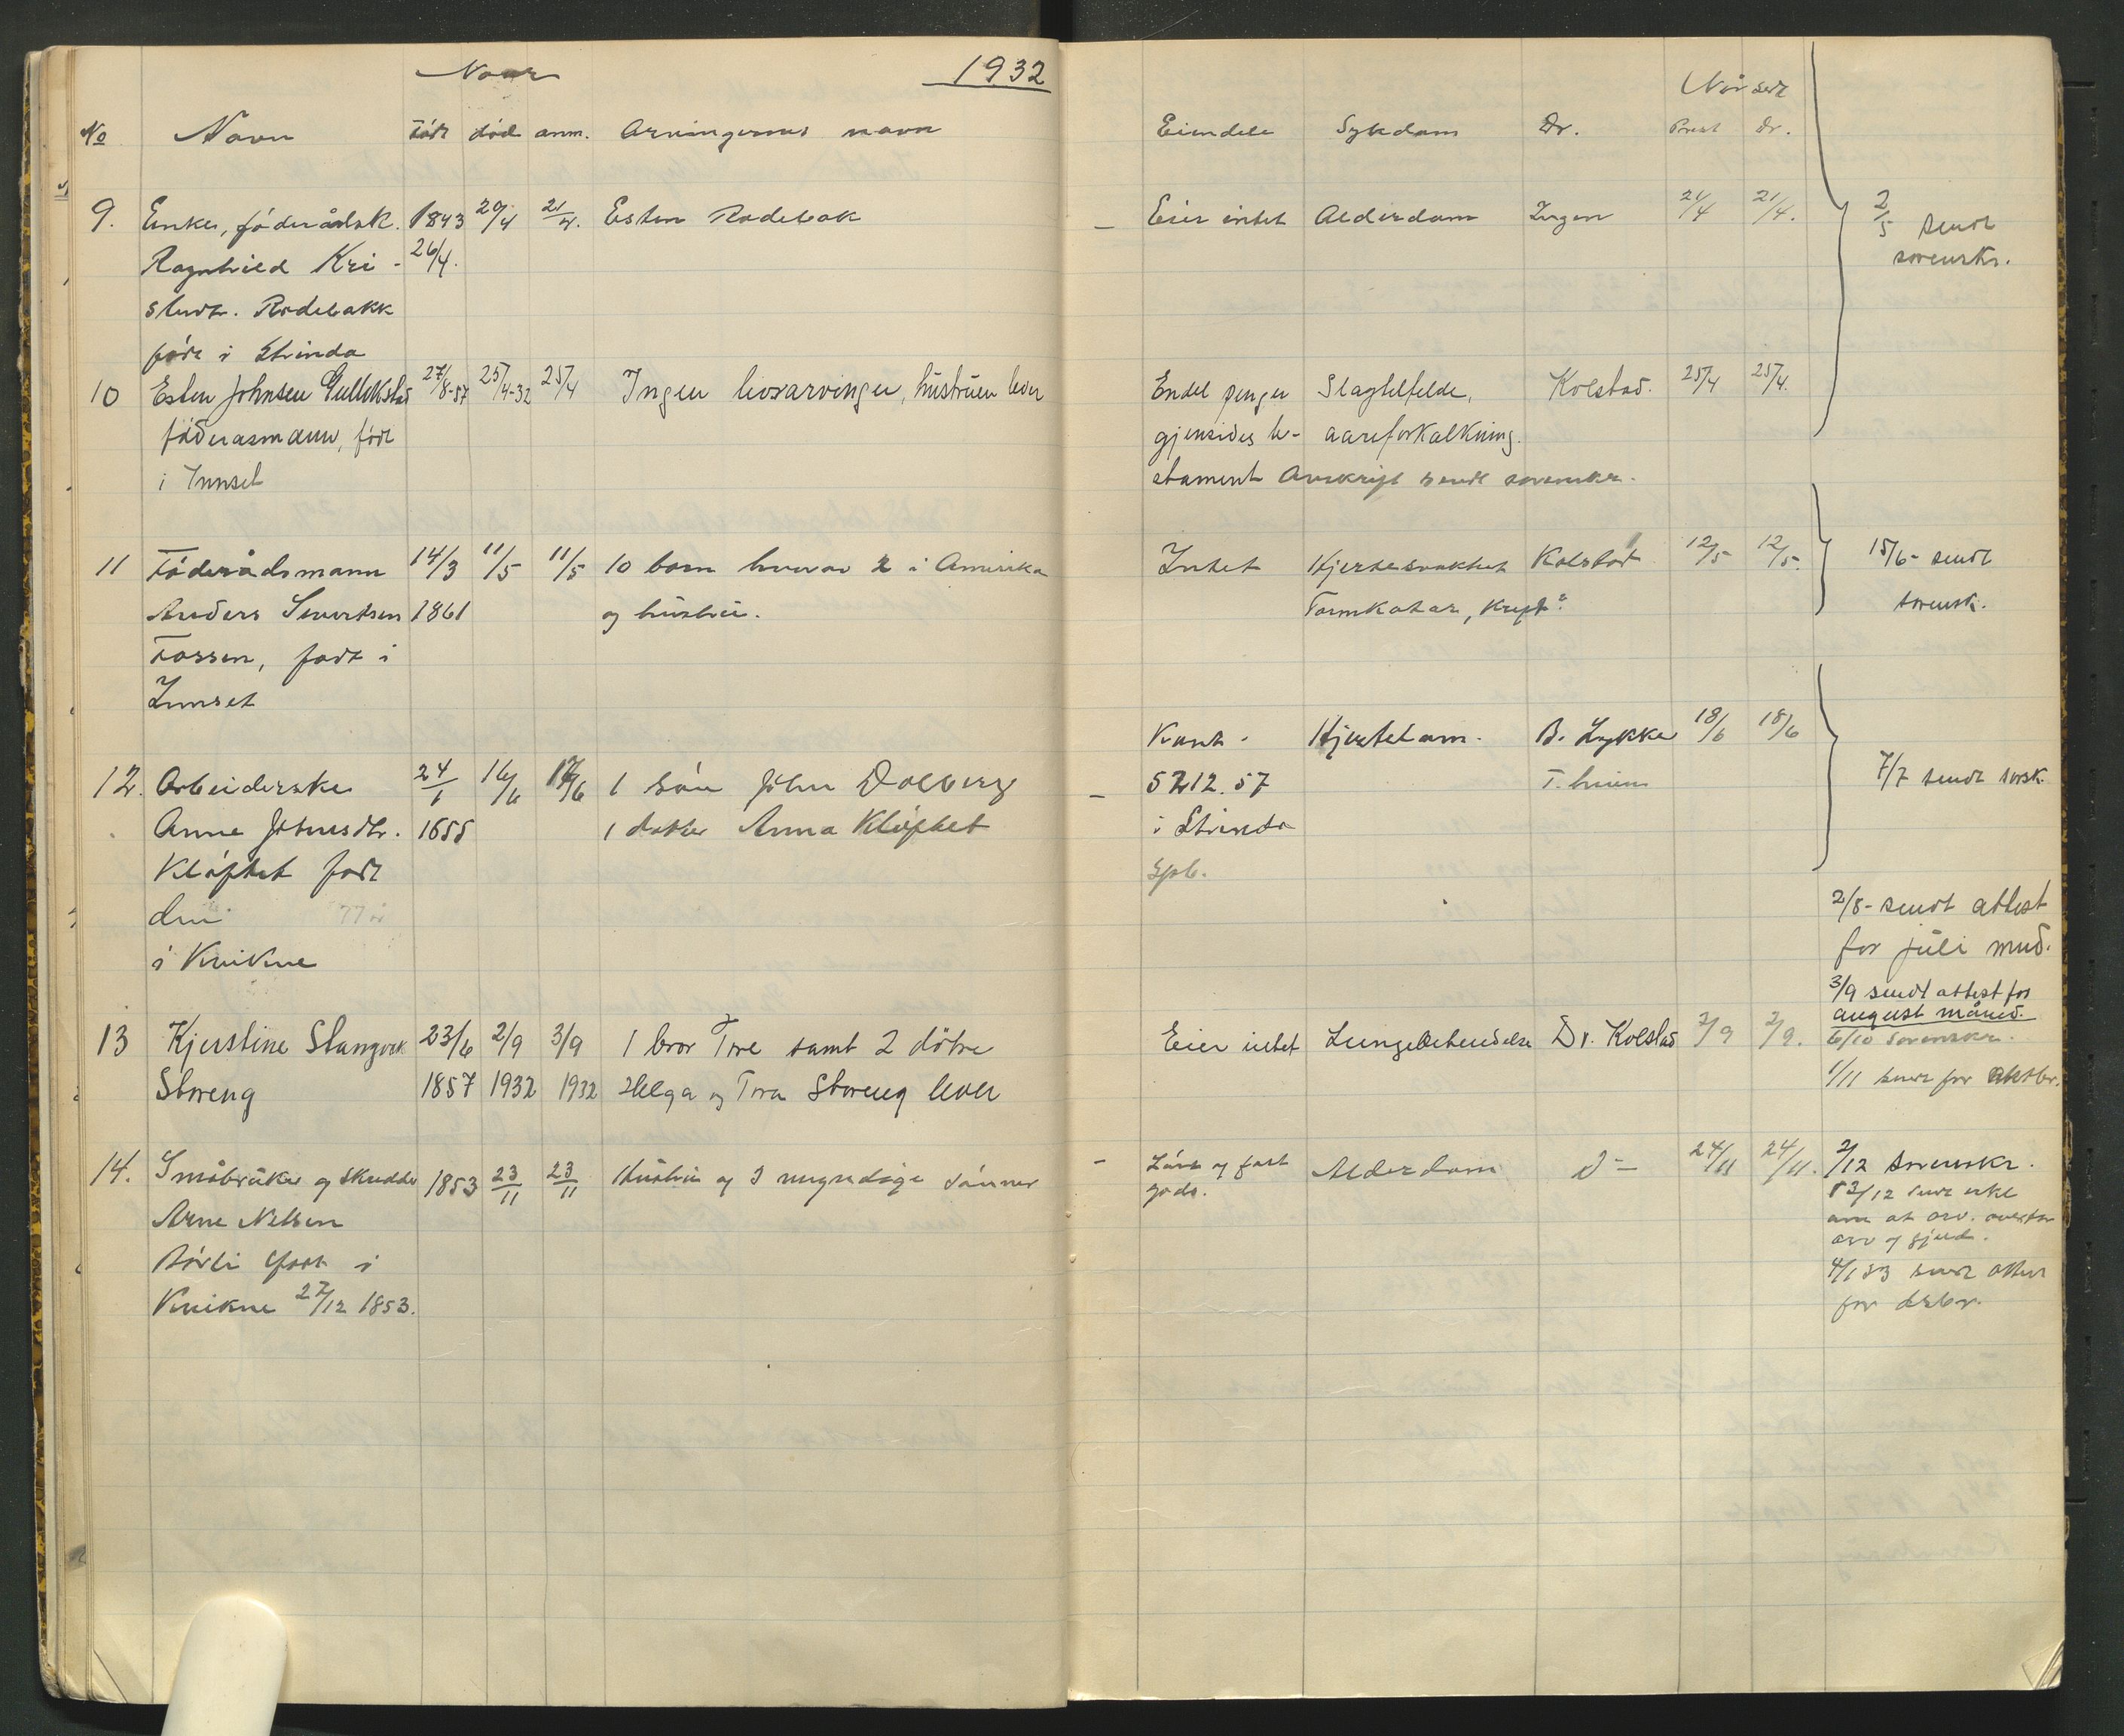 Naar
1932
No Navn født död anm. Arvingernes navn
9. Enke, føderådsk. 1843 20/4 21/4. Esten Rødebak
Ragnhild Kri- 26/4.
stdt. Rødebakk
født i Strinda
10 Esten Johnsen Gullikstad 27/8-57 25/4-32 25/4 Ingen livsarvinger, hustruen lever
föderasmann, född
i Innset
11 Föderådsmann 14/3 11/5 11/5 10 barn hvorav 2 i Amerika
Anders Sivertsen 1861 og hustru.
Fossen, født i
Innset
12. Arbeiderske 24/1 16/6 17/6 1 sön John Dolberg
Anne Johnsdtr. 1855 1 datter Anna Kløftet
Kløftet født
den 77 år
i Kvikne
13 Kjerstine Stangvik 23/6 2/9 3/9 1 bror Tore samt 2 dötre
Storeng 1857 1932 1932 Helga og Tora Storeng lever
14. Småbruker og skredder 1853 23/11 23/11 Hustru og 3 myndige sönner
Arne Nelsen
Børli født i
Kvikne 27/12 1853.
Når sendt
Eiendele Sykdom Dr. Prest Dr.
Eier intet Alderdom Ingen 21/4 21/4. 2/5 sendt
sorenskr.
Endel penger Slagtilfelde, Kolstad. 25/4 25/4.
gjensides te- aareforkalkning.
stament Avskrift sendt sorenskr.
Intet Hjertesvakhet Kolstad 12/5 12/5. 15/6- sendt
Tarmkatar, kreft? sorensk.
Kont. Hjertelam. B. Lykke 18/6 18/6
5212.57 T.heim 7/7 sendt sorsk.
i Strinda
Spb.
2/8- sendt attest
for juli mnd.
3/9 sendt attest for
august måned.
Eier intet Lungebetendelse Dr. Kolstad 3/9 3/9. 6/10 Sorenskr.
1/11 sendt for oktbr.
Löst og fast Alderdom D— 24/11 24/11. 2/12 sorenskr.
gods.
13/12 sendt erkl
om at arv. overtar
arv og gjeld.
4/1 33 sendt attest
for desbr.